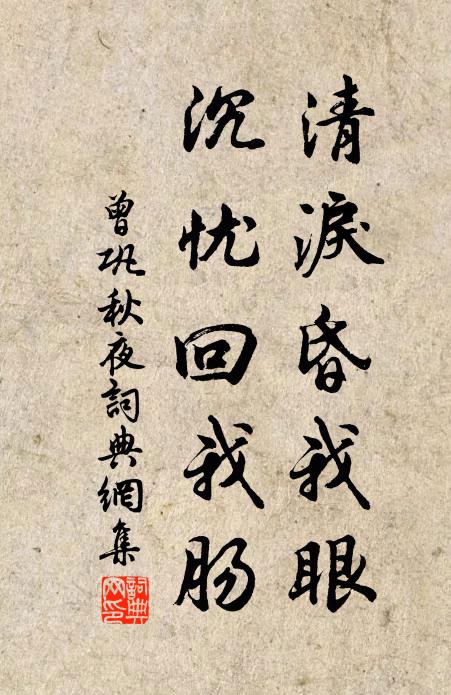 清淚昏我眼
沉忧回我肠
曾巩秋夜詞典網集
詞典网印